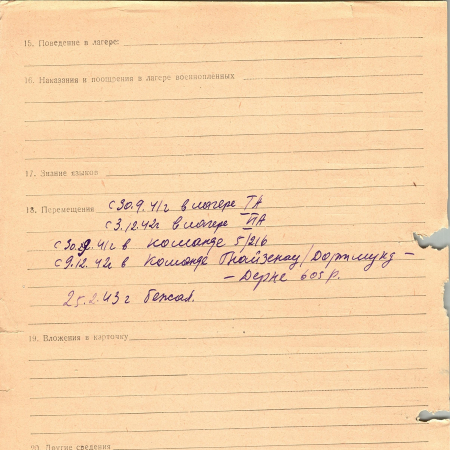 15. Поведение в лагере:
16. Наказания и поощрения в лагере военнопленных
17. Знание языков
18. Перемещения с 30.9.41г в лагере IА
с 3.12.42г в лагере VIА
с 30.9.41г в команде 5/216
с 9.12.42г в команде Гнайзенау/Дортмунд –
– Дерне 605 р.
25.2.43 г бежал.
19. Вложения в карточку
20. Другие сведения